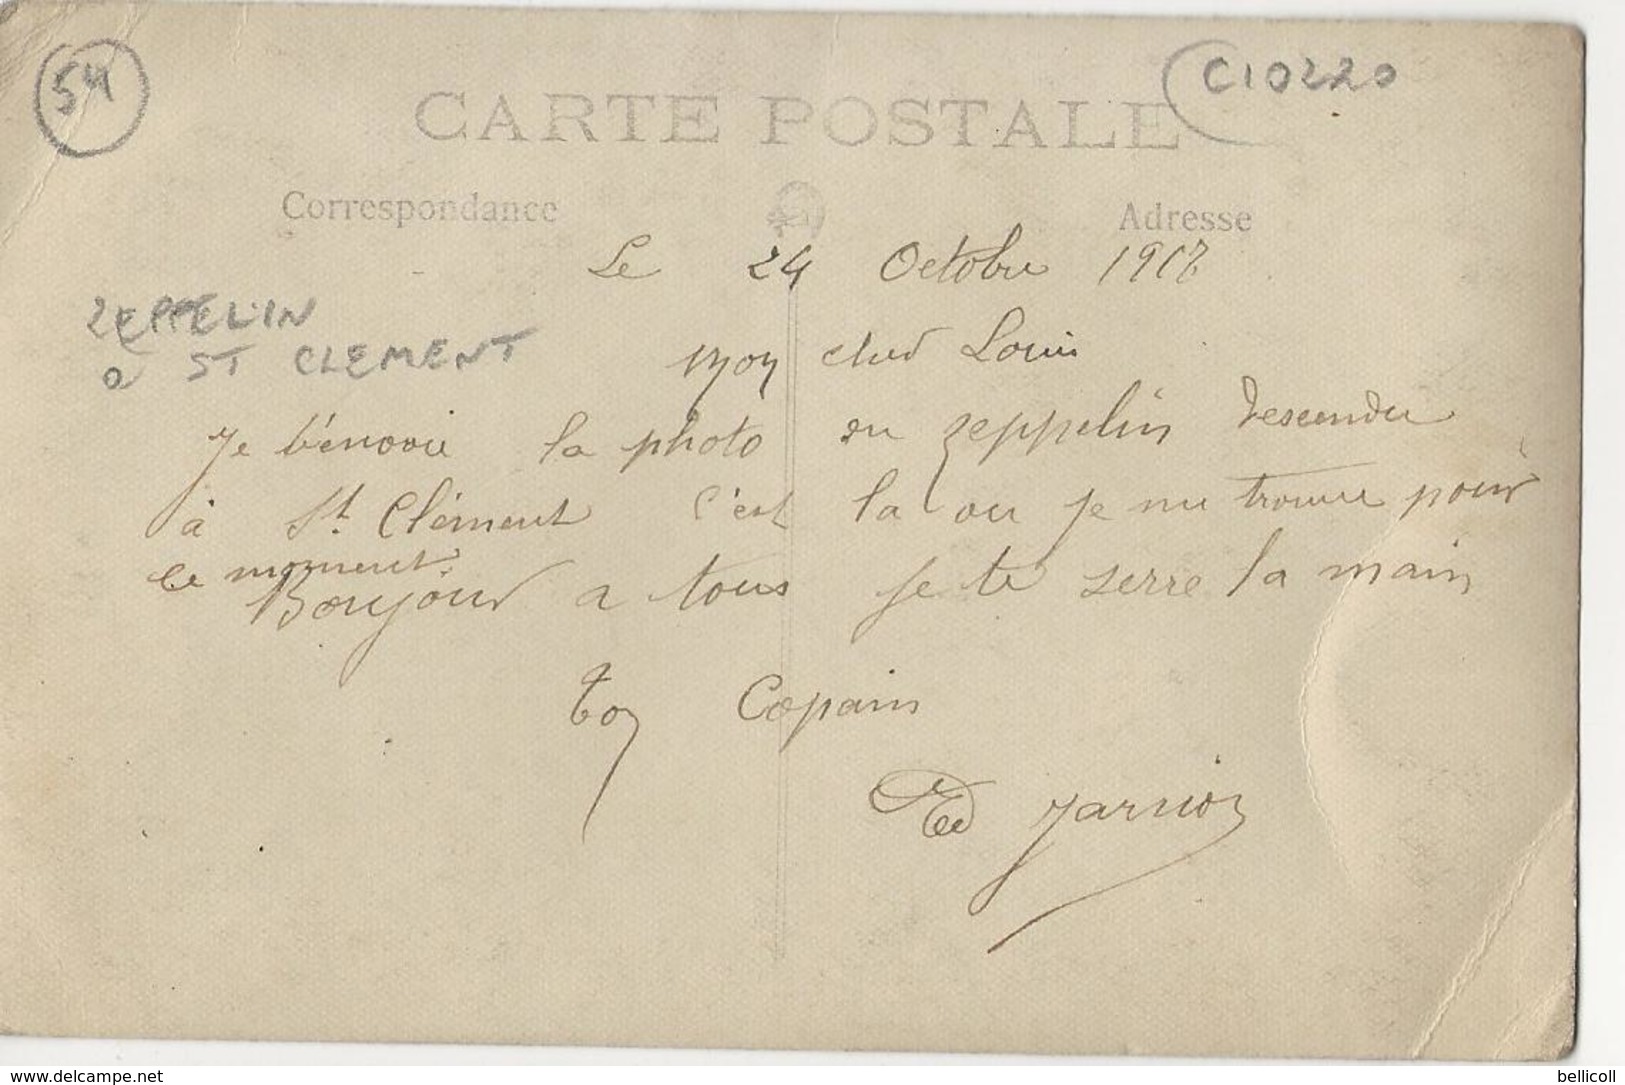 54
C10220
CARTE POSTALE
Correspondance
Adresse
Le 24 Octobre 1917
ZEPPELIN
à ST CLEMENT
Mon cher Louis
Je t'envoie la photo du zeppelin descendu
à St. Clément c'est la ou je me trouve pour
le moment.
Bonjour a tous je te serre la main
ton Copain
Ed
www.delcampe.net
bellicoll